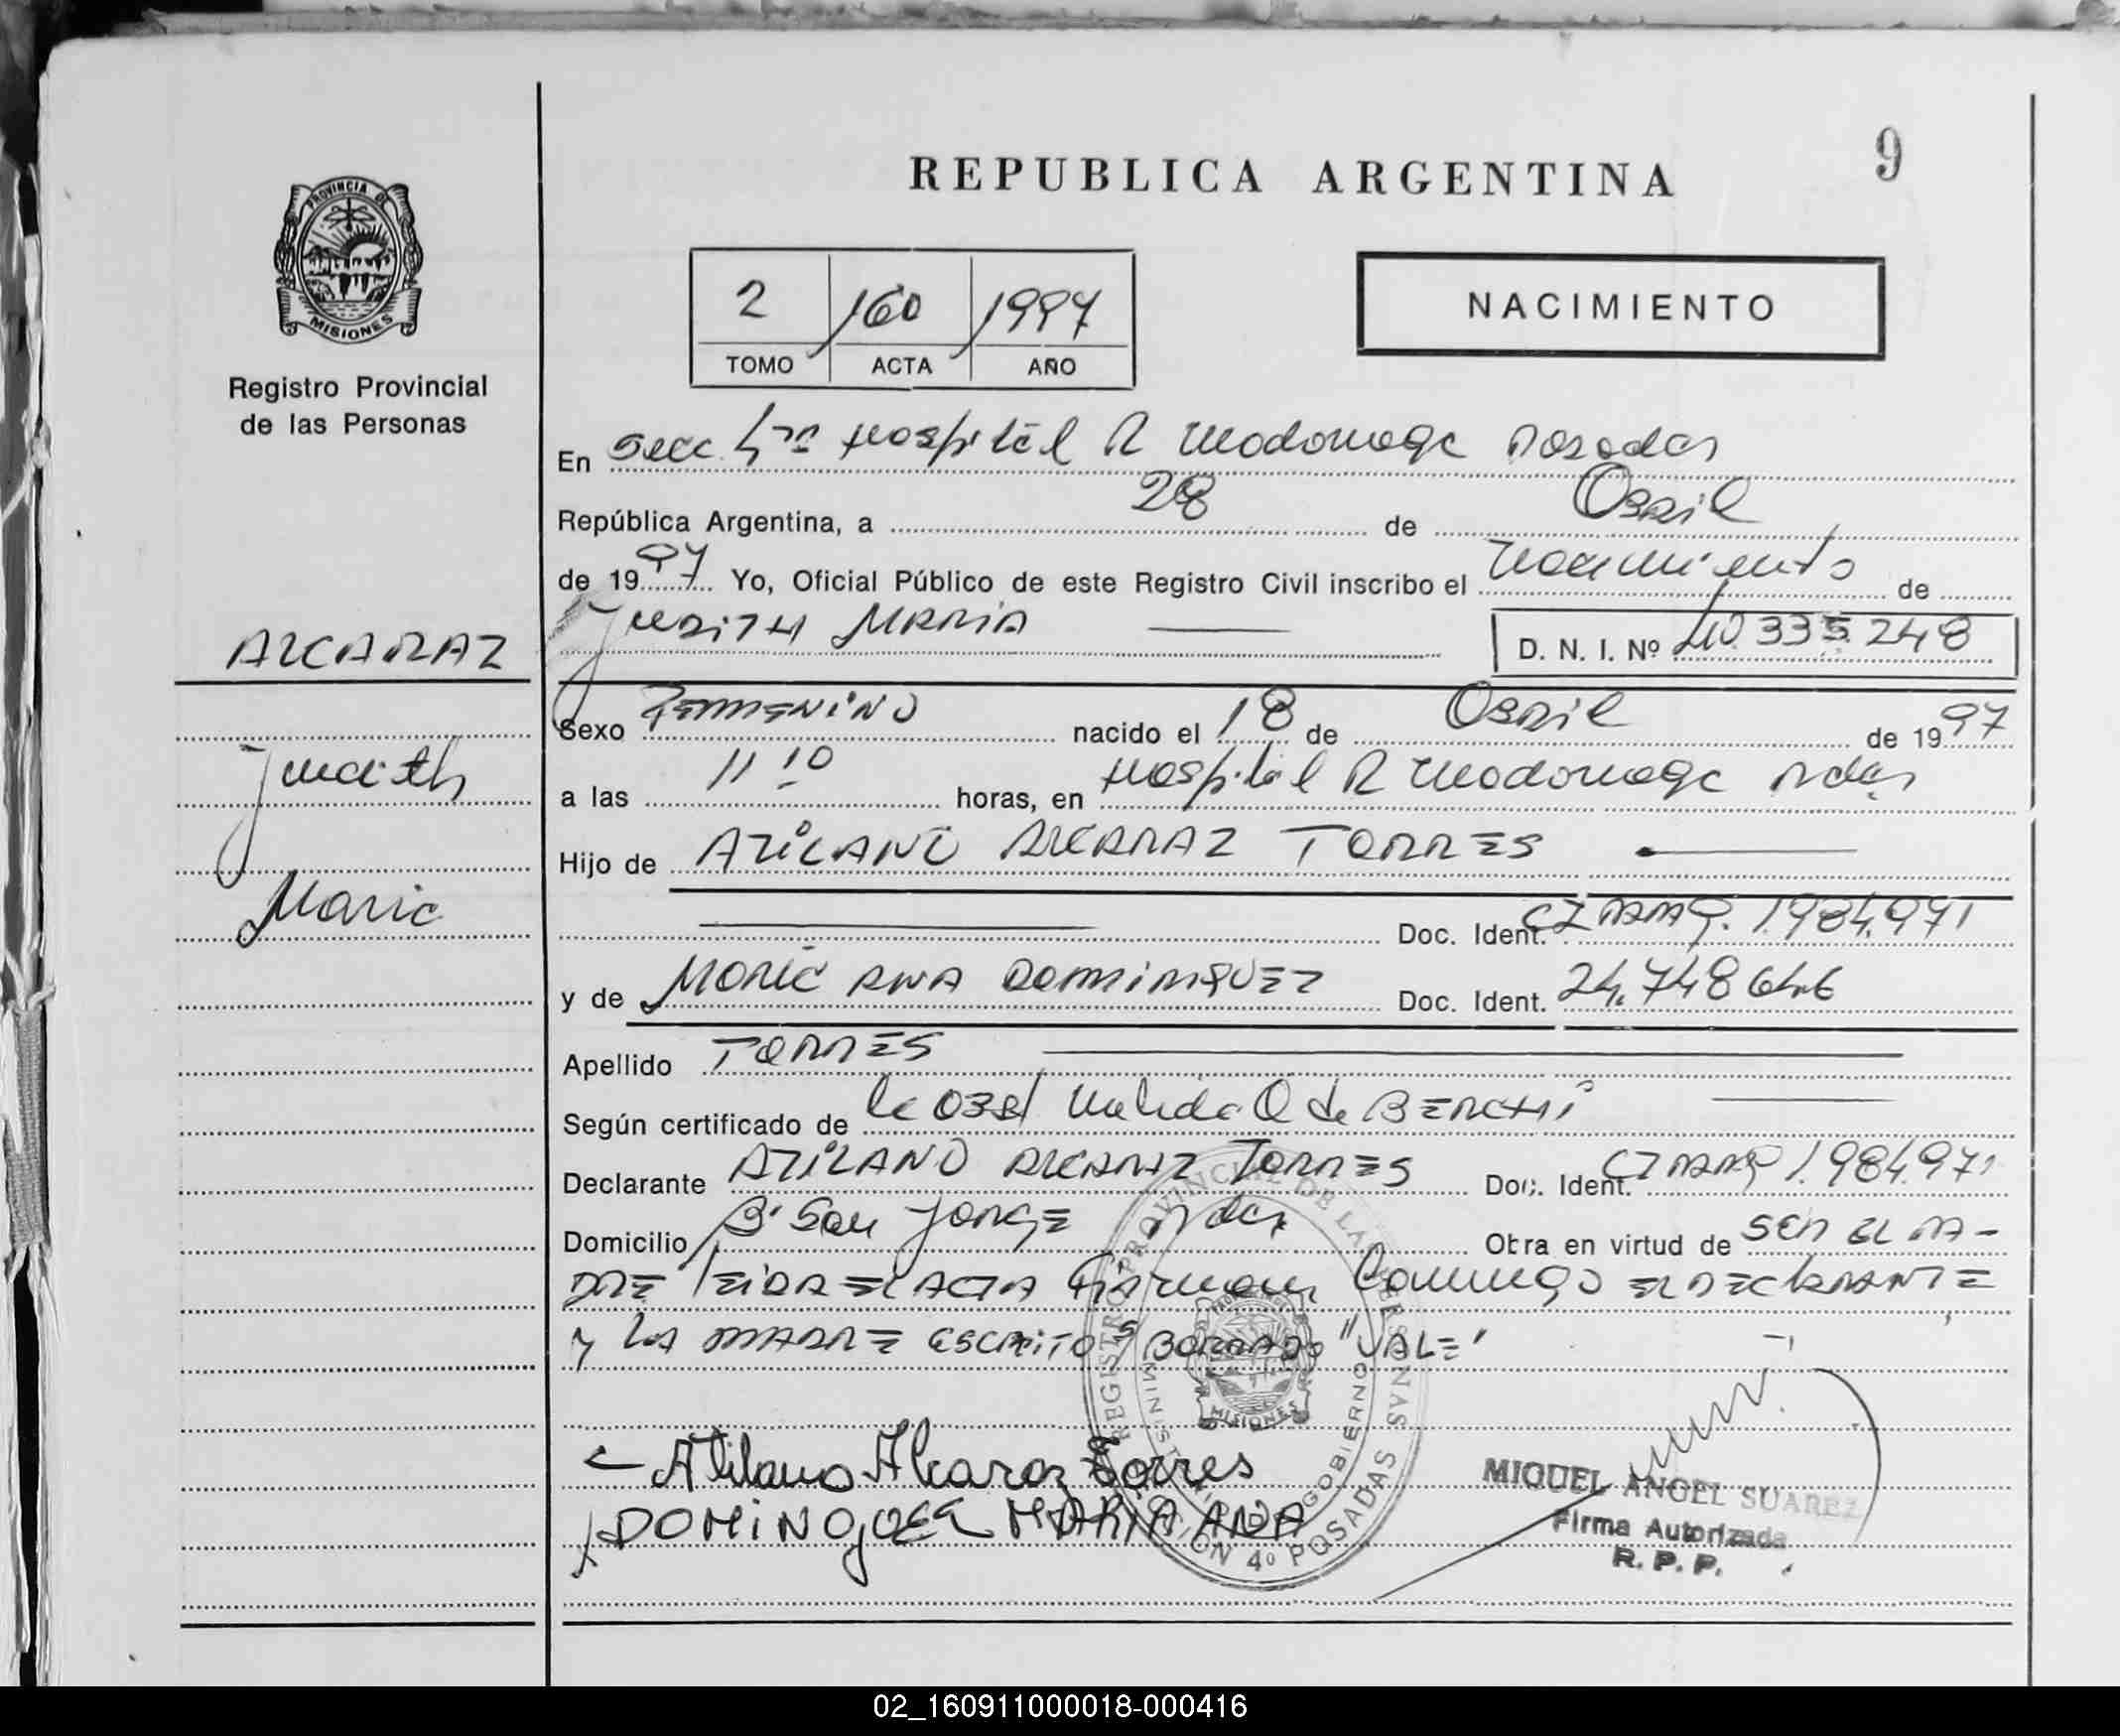 REPUBLICA ARGENTINA
9
PROVINCIA DE
MISIONES
Registro Provincial
de las Personas
2 160 1997
TOMO ACTA AÑO
NACIMIENTO
En Secc 4ta Hospital R Madariaga Posadas
República Argentina, a 28 de Abril
de 1997 Yo, Oficial Público de este Registro Civil inscribo el nacimiento de
ALCARAZ
JUDITH MARIA
D. N. I. Nº 40 335 248
Sexo FEMENINO nacido el 18 de Abril de 1997
Judith
a las 11 10 horas, en Hospital R Madariaga Pdas
Hijo de ATILANO ALCARAZ TORRES
Maria
Doc. Ident. 1.984.971
y de MARIA ANA DOMINGUEZ Doc. Ident. 24.748 646
Apellido TORRES
Según certificado de la Obst Nelida Q de BERCHI
Declarante ATILANO ALCARAZ TORRES Doc. Ident. 1.984.971
Domicilio B° San JORGE Pdas Otra en virtud de SER EL PA-
DRE leida EL ACTA Firman Conmigo EL DECLARANTE
Y LA MADRE ESCRITO S/BORRADO "VALE"
Atilano Alcaraz Torres
DOMINGUEZ MARIA ANA
REGISTRO PROVINCIAL DE LAS PERSONAS
MINISTERIO DE GOBIERNO
MISIONES
SECCION 4º POSADAS
MIGUEL ANGEL SUAREZ
Firma Autorizada
R. P. P.
02_160911000018-000416